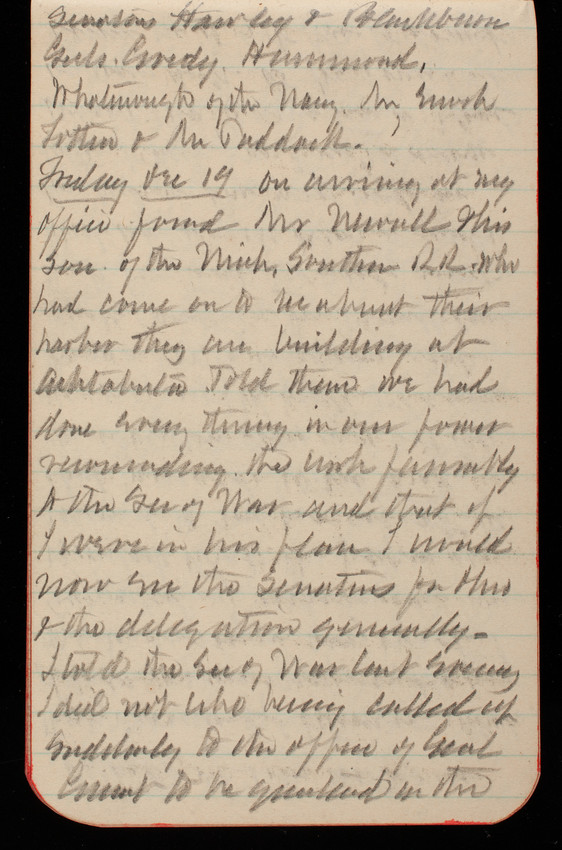 Senators Hawley & Blackburn
Genls. Greely, Hammond,
of the Navy, Mr Enoch
Totten & Mr Paddock.
Friday Dec 19 on arriving at my
office found Mr Newell & his
son of the Mich, Southern R.R. who
had come on to see about their
harbor they are building at
Ashtabula. Told them we had
done every thing in our power
recommending the work favorably
to the Sec of War and that if
I were in his place I would
now see the Senators for Ohio
& the delegation generally -
I told the Sec of War last evening
I did not like being called up
suddenly to the office of Genl
to be questioned in the